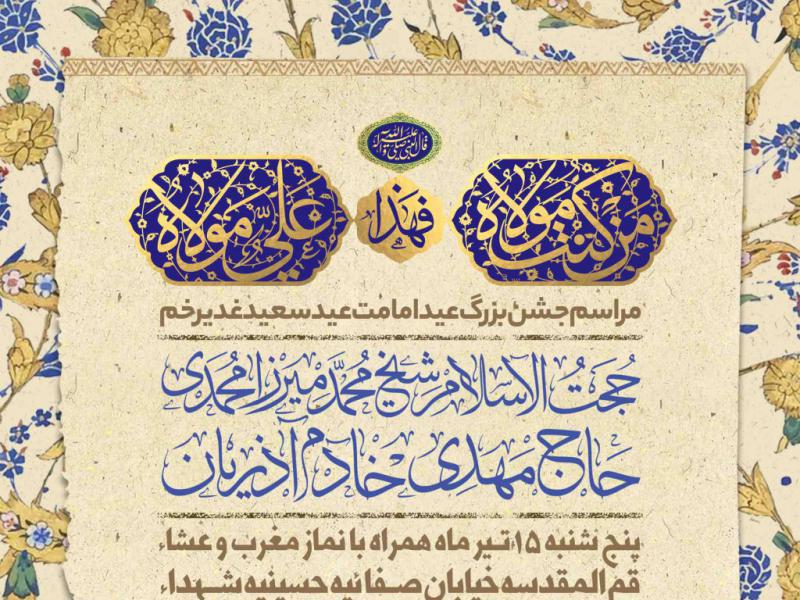 قال النبي صلى الله عليه وآله
من كنت مولاه فهذا علي مولاه
مراسم جشن بزرگ عید امامت عید سعید غدیر خم
حجت الاسلام شیخ محمد میرزامحمدی
حاج مهدی خادم آذریان
پنج شنبه ۱۵ تیر ماه همراه با نماز مغرب و عشاء
قم المقدسه خیابان صفائیه حسینیه شهداء